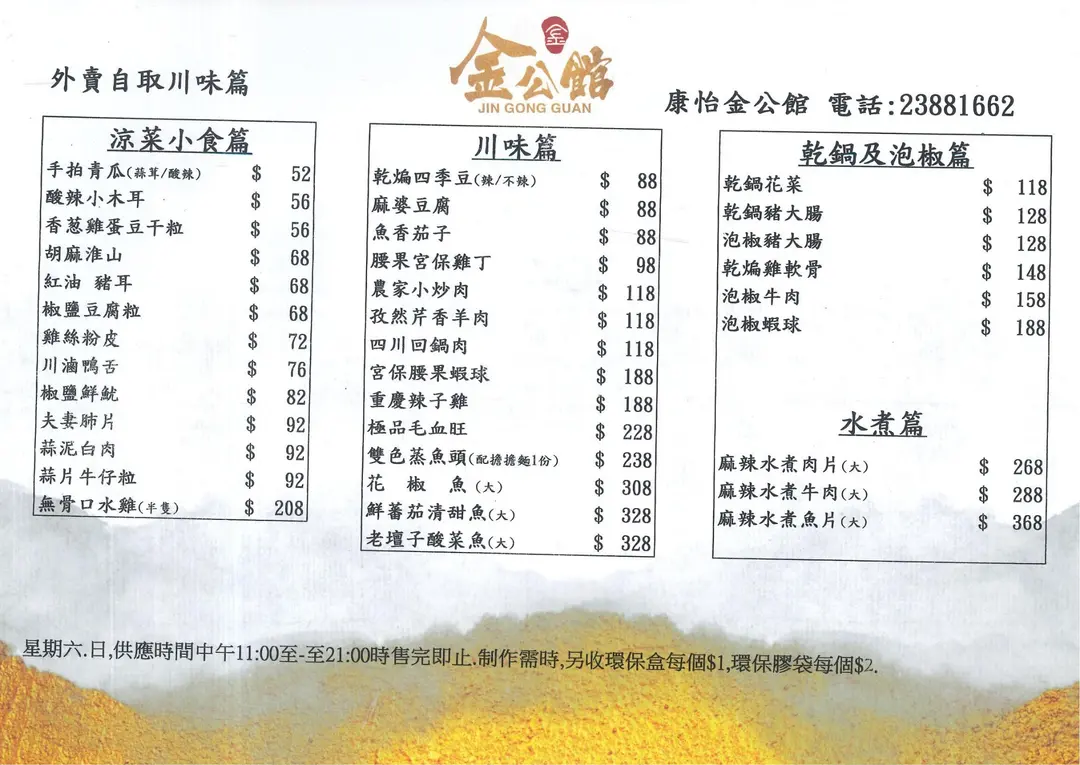 外賣自取川味篇
金公館
金
JIN GONG GUAN
康怡金公館 電話:23881662
涼菜小食篇
手拍青瓜(蒜茸/酸辣) $ 52
酸辣小木耳 $ 56
香葱雞蛋豆干粒 $ 56
胡麻淮山 $ 68
紅油 豬耳 $ 68
椒鹽豆腐粒 $ 68
雞絲粉皮 $ 72
川滷鴨舌 $ 76
椒鹽鮮魷 $ 82
夫妻肺片 $ 92
蒜泥白肉 $ 92
蒜片牛仔粒 $ 92
無骨口水雞(半隻) $ 208
川味篇
乾煸四季豆(辣/不辣) $ 88
麻婆豆腐 $ 88
魚香茄子 $ 88
腰果宮保雞丁 $ 98
農家小炒肉 $ 118
孜然芹香羊肉 $ 118
四川回鍋肉 $ 118
宮保腰果蝦球 $ 188
重慶辣子雞 $ 188
極品毛血旺 $ 228
雙色蒸魚頭(配擔擔麵1份) $ 238
花 椒 魚(大) $ 308
鮮蕃茄清甜魚(大) $ 328
老壇子酸菜魚(大) $ 328
乾鍋及泡椒篇
乾鍋花菜 $ 118
乾鍋豬大腸 $ 128
泡椒豬大腸 $ 128
乾煸雞軟骨 $ 148
泡椒牛肉 $ 158
泡椒蝦球 $ 188
水煮篇
麻辣水煮肉片(大) $ 268
麻辣水煮牛肉(大) $ 288
麻辣水煮魚片(大) $ 368
星期六.日,供應時間中午11:00至-至21:00時售完即止.制作需時,另收環保盒每個$1,環保膠袋每個$2.